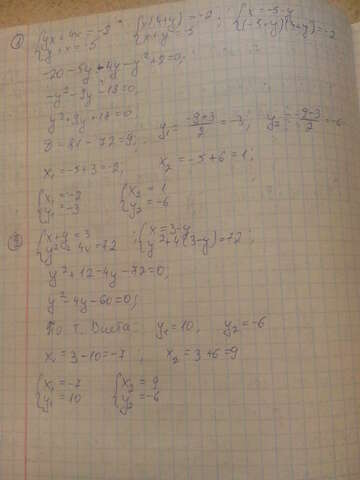 1) {yx+4x=-2 {x(4+y)=-2 {x=-5-y
y+x=-5; x+y=-5; (-5-y)(4+y)=-2
-20-5y-4y-y²+2=0;
-y²-9y-18=0;
y²+9y+18=0;
D=81-72=9; y₁=(-9+3)/2=-3; y₂=(-9-3)/2=-6
x₁=-5+3=-2; x₂=-5+6=1;
{x₁=-2 {x₂=1
y₁=-3 y₂=-6
2) {x+y=3 {x=3-y
y²+4x=72 y²+4(3-y)=72;
y²+12-4y-72=0;
y²-4y-60=0;
По т. Виета: y₁=10, y₂=-6
x₁=3-10=-7, x₂=3+6=9
{x₁=-7 {x₂=9
y₁=10 y₂=-6